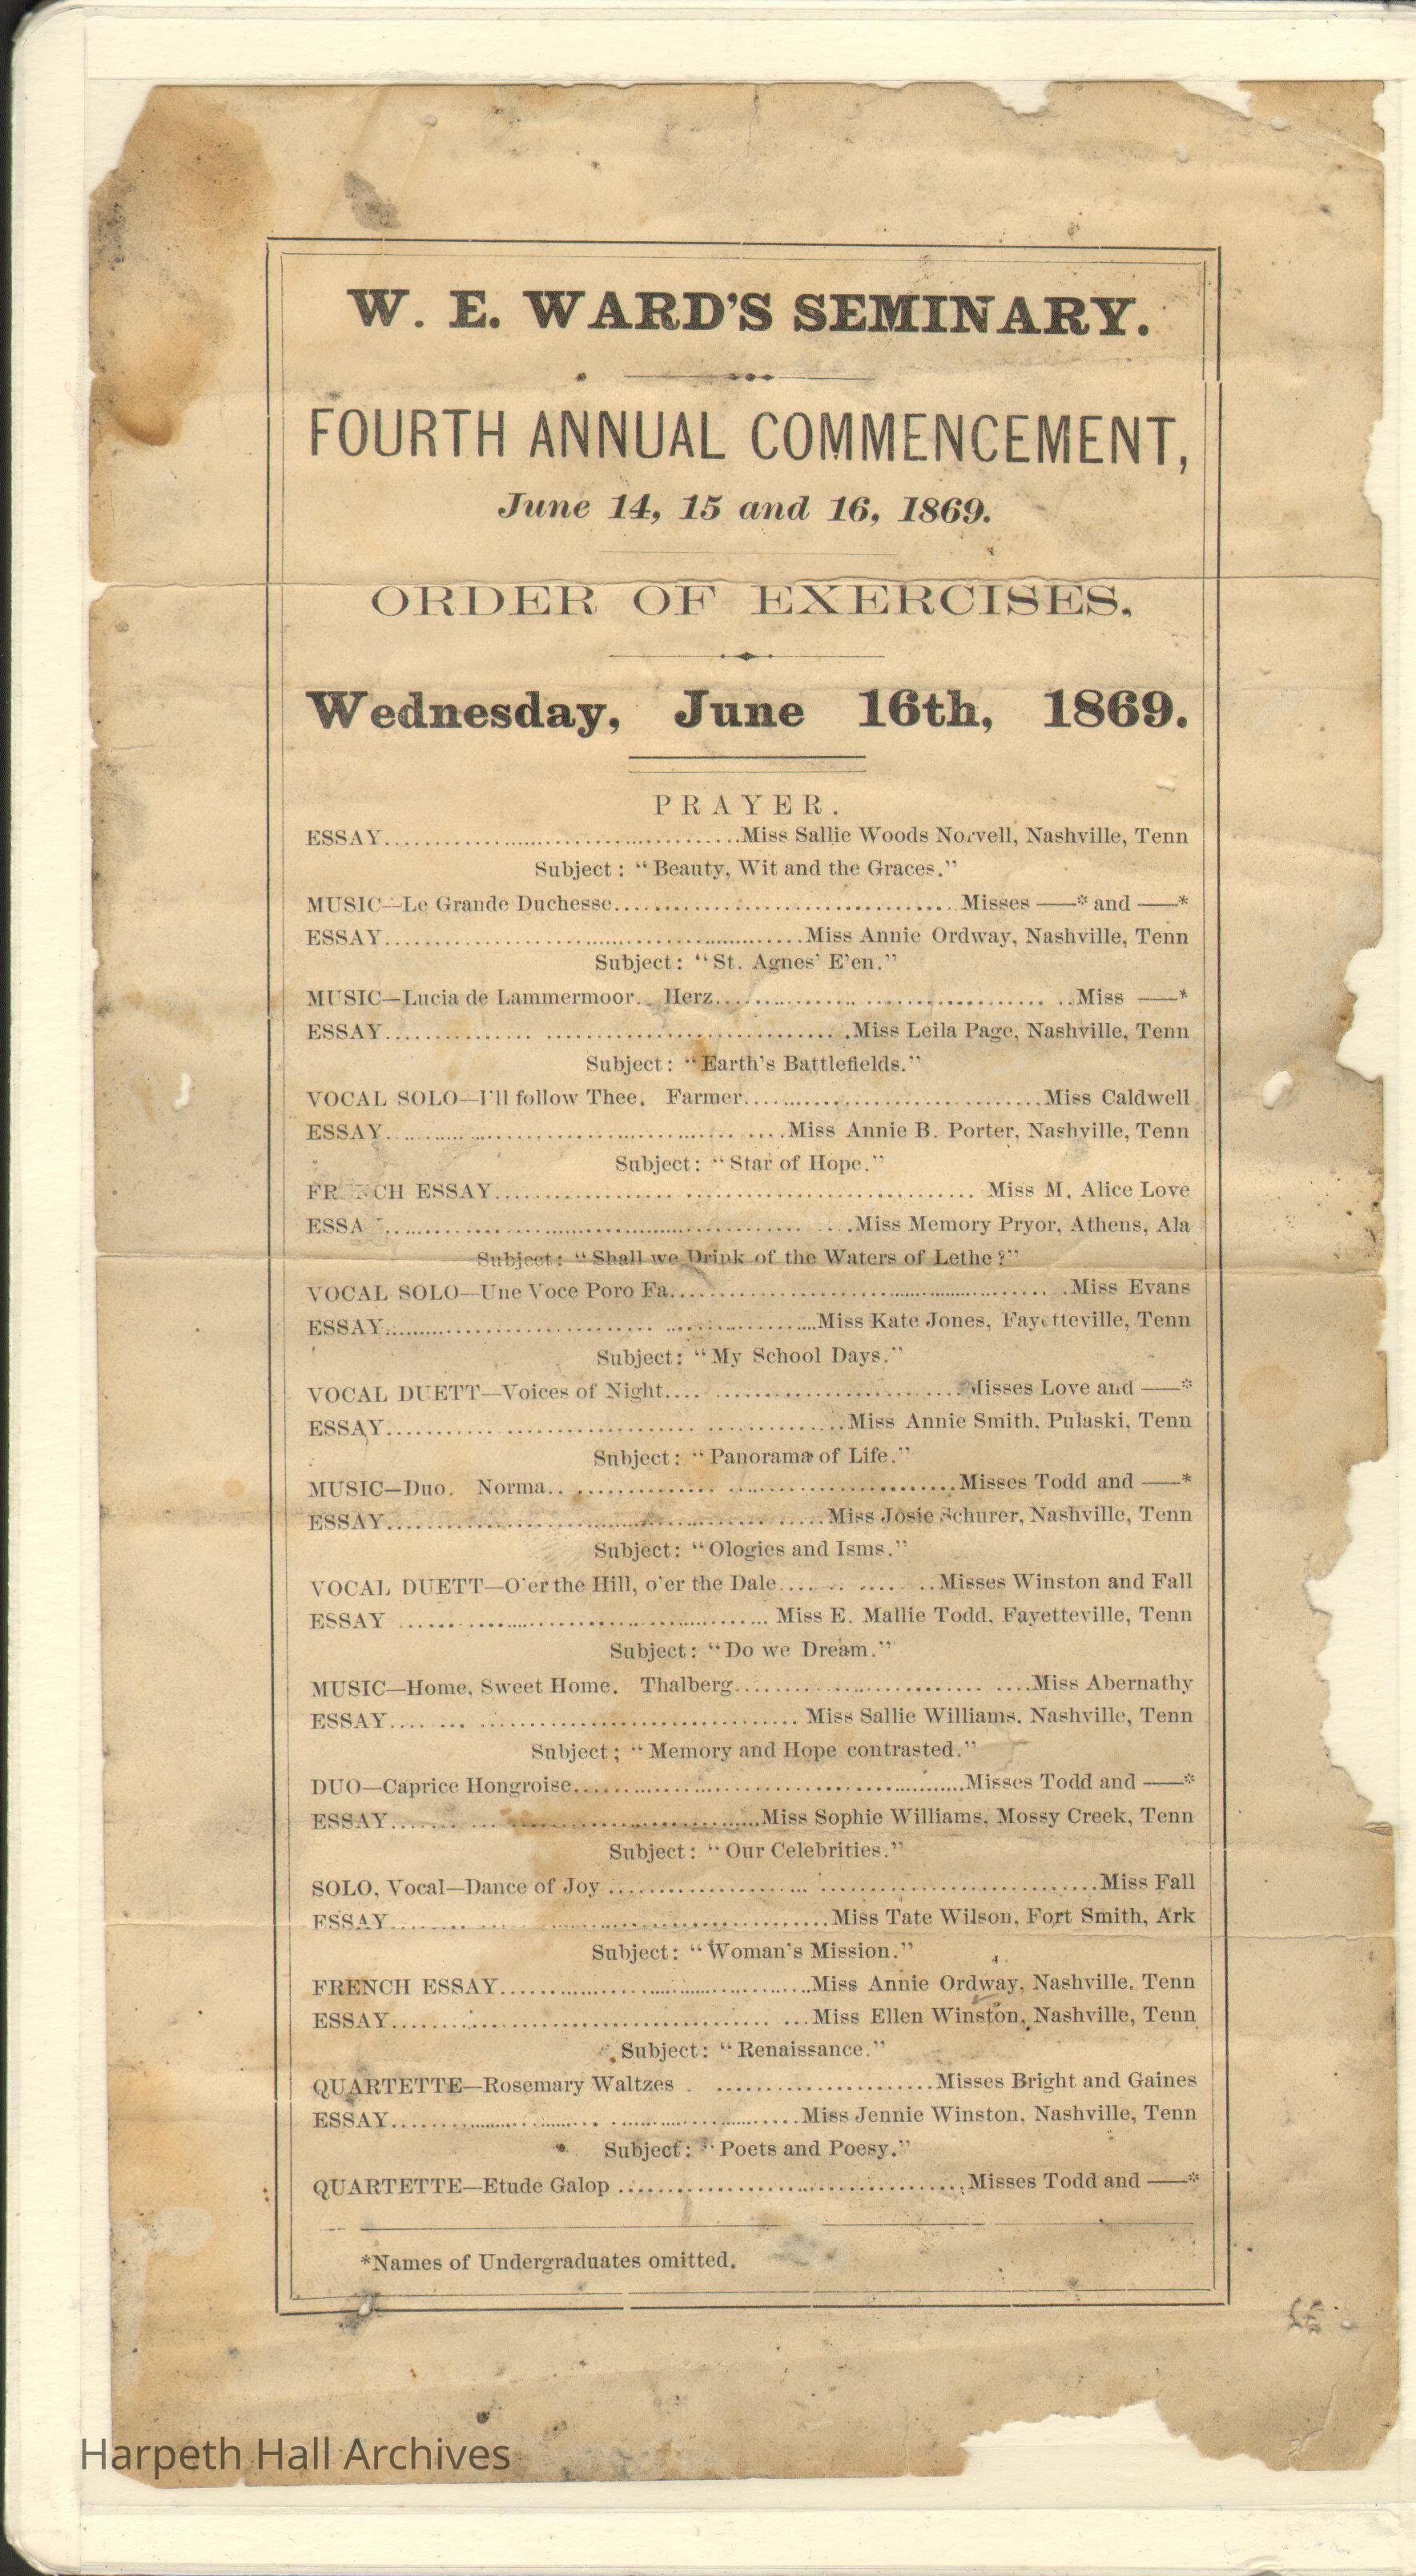 W. E. WARD'S SEMINARY.
FOURTH ANNUAL COMMENCEMENT,
June 14, 15 and 16, 1869.
ORDER OF EXERCISES.
Wednesday, June 16th, 1869.
PRAYER.
ESSAY........Miss Sallie Woods Norvell, Nashville, Tenn
Subject: "Beauty, Wit and the Graces."
MUSIC—Le Grande Duchesse........Misses ——* and ——*
ESSAY........Miss Annie Ordway, Nashville, Tenn
Subject: "St. Agnes' E'en."
MUSIC—Lucia de Lammermoor. Herz........Miss ——*
ESSAY........Miss Leila Page, Nashville, Tenn
Subject: "Earth's Battlefields."
VOCAL SOLO—I'll follow Thee. Farmer........Miss Caldwell
ESSAY........Miss Annie B. Porter, Nashville, Tenn
Subject: "Star of Hope."
FRENCH ESSAY........Miss M. Alice Love
ESSAY........Miss Memory Pryor, Athens, Ala
Subject: "Shall we Drink of the Waters of Lethe?"
VOCAL SOLO—Une Voce Poro Fa........Miss Evans
ESSAY........Miss Kate Jones, Fayetteville, Tenn
Subject: "My School Days."
VOCAL DUETT—Voices of Night........Misses Love and ——*
ESSAY........Miss Annie Smith, Pulaski, Tenn
Subject: "Panorama of Life."
MUSIC—Duo. Norma........Misses Todd and ——*
ESSAY........Miss Josie Schurer, Nashville, Tenn
Subject: "Ologies and Isms."
VOCAL DUETT—O'er the Hill, o'er the Dale........Misses Winston and Fall
ESSAY........Miss E. Mallie Todd, Fayetteville, Tenn
Subject: "Do we Dream."
MUSIC—Home, Sweet Home. Thalberg........Miss Abernathy
ESSAY........Miss Sallie Williams, Nashville, Tenn
Subject; "Memory and Hope contrasted."
DUO—Caprice Hongroise........Misses Todd and ——*
ESSAY........Miss Sophie Williams, Mossy Creek, Tenn
Subject: "Our Celebrities."
SOLO, Vocal—Dance of Joy........Miss Fall
ESSAY........Miss Tate Wilson, Fort Smith, Ark
Subject: "Woman's Mission."
FRENCH ESSAY........Miss Annie Ordway, Nashville, Tenn
ESSAY........Miss Ellen Winston, Nashville, Tenn
Subject: "Renaissance."
QUARTETTE—Rosemary Waltzes........Misses Bright and Gaines
ESSAY........Miss Jennie Winston, Nashville, Tenn
Subject: "Poets and Poesy."
QUARTETTE—Etude Galop........Misses Todd and ——*
*Names of Undergraduates omitted.
Harpeth Hall Archives